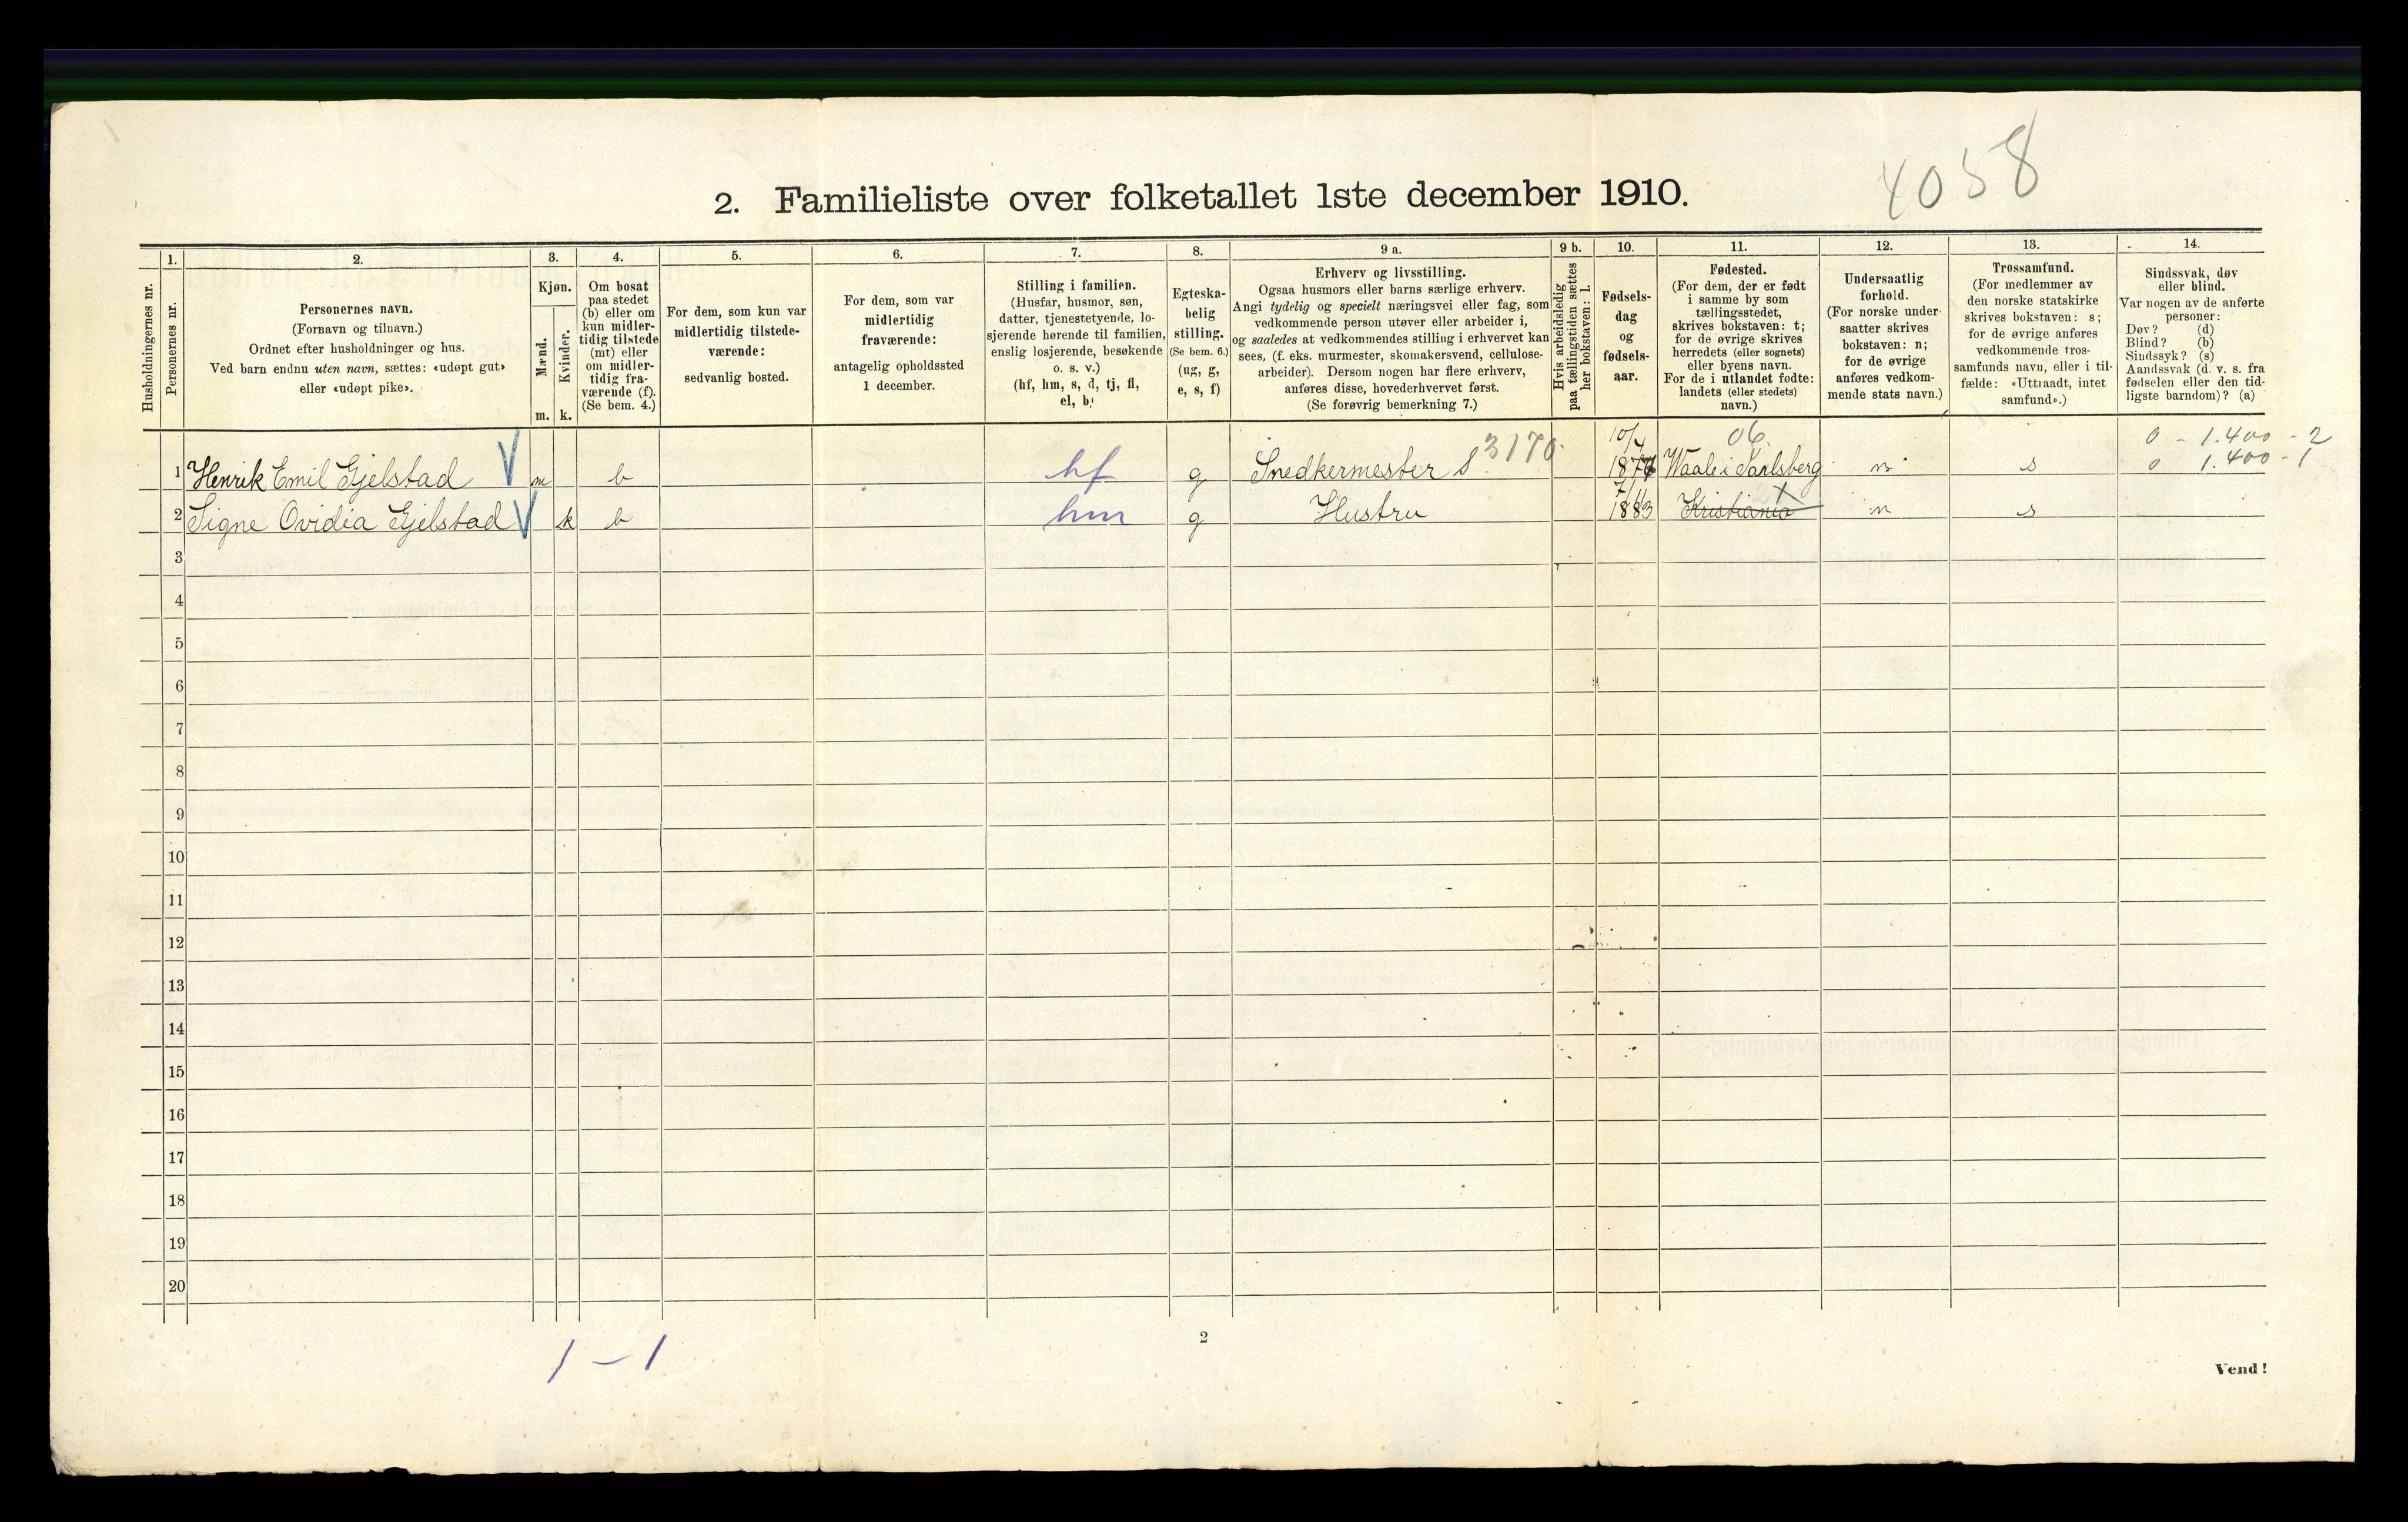 4058
2. Familieliste over folketallet 1ste december 1910.
Husholdningernes nr.
1.
Personernes nr.
2.
Personernes navn.
(Fornavn og tilnavn.)
Ordnet efter husholdninger og hus.
Ved barn endnu uten navn, sættes: «udøpt gut»
eller «udøpt pike».
3.
Kjøn.
Mænd.
m.
Kvinder.
k.
4.
Om bosat
paa stedet
(b) eller om
kun midler-
tidig tilstede
(mt) eller
om midler-
tidig fra-
værende (f).
(Se bem. 4.)
5.
For dem, som kun var
midlertidig tilstede-
værende:
sedvanlig bosted.
6.
For dem, som var
midlertidig
fraværende:
antagelig opholdssted
1 december.
7.
Stilling i familien.
(Husfar, husmor, søn,
datter, tjenestetyende, lo-
sjerende hørende til familien,
enslig losjerende, besøkende
o. s. v.)
(hf, hm, s, d, tj, fl,
el, b)
8.
Egteska-
belig
stilling.
(Se bem. 6.)
(ug, g,
e, s, f)
9 a.
Erhverv og livsstilling.
Ogsaa husmors eller barns særlige erhverv.
Angi tydelig og specielt næringsvei eller fag, som
vedkommende person utøver eller arbeider i,
og saaledes at vedkommendes stilling i erhvervet kan
sees, (f. eks. murmester, skomakersvend, cellulose-
arbeider). Dersom nogen har flere erhverv,
anføres disse, hovederhvervet først.
(Se forøvrig bemerkning 7.)
9 b.
Hvis arbeidsledig
paa tællingstiden sættes
her bokstaven: l.
10.
Fødsels-
dag
og
fødsels-
aar.
11.
Fødested.
(For dem, der er født
i samme by som
tællingsstedet,
skrives bokstaven: t;
for de øvrige skrives
herredets (eller sognets)
eller byens navn.
For de i utlandet fødte:
landets (eller stedets)
navn.)
12.
Undersaatlig
forhold.
(For norske under-
saatter skrives
bokstaven: n;
for de øvrige
anføres vedkom-
mende stats navn.)
13.
Trossamfund.
(For medlemmer av
den norske statskirke
skrives bokstaven: s;
for de øvrige anføres
vedkommende tros-
samfunds navn, eller i til-
fælde: «Uttraadt, intet
samfund».)
14.
Sindssvak, døv
eller blind.
Var nogen av de anførte
personer:
Døv? (d)
Blind? (b)
Sindssyk? (s)
Aandssvak (d. v. s. fra
fødselen eller den tid-
ligste barndom)? (a)
10/4 06. 0 - 1.400 - 2
1 Henrik Emil Gjelstad m b hf g Snedkermester S 3170. Waale i Jarlsberg n s 0 1.400 - 1
7/11
2 Signe Ovidia Gjelstad k b hm g Hustru 1883 Kristiania t n s
3
4
5
6
7
8
9
10
11
12
13
14
15
16
17
18
19
20
1 – 1
2
Vend!